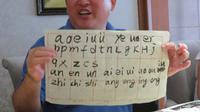 a o e i u ü ye wu er
b p m f d t n l g k h j
q x z c s
an en un ai ei ui
zhi chi shi ang eng ing ong